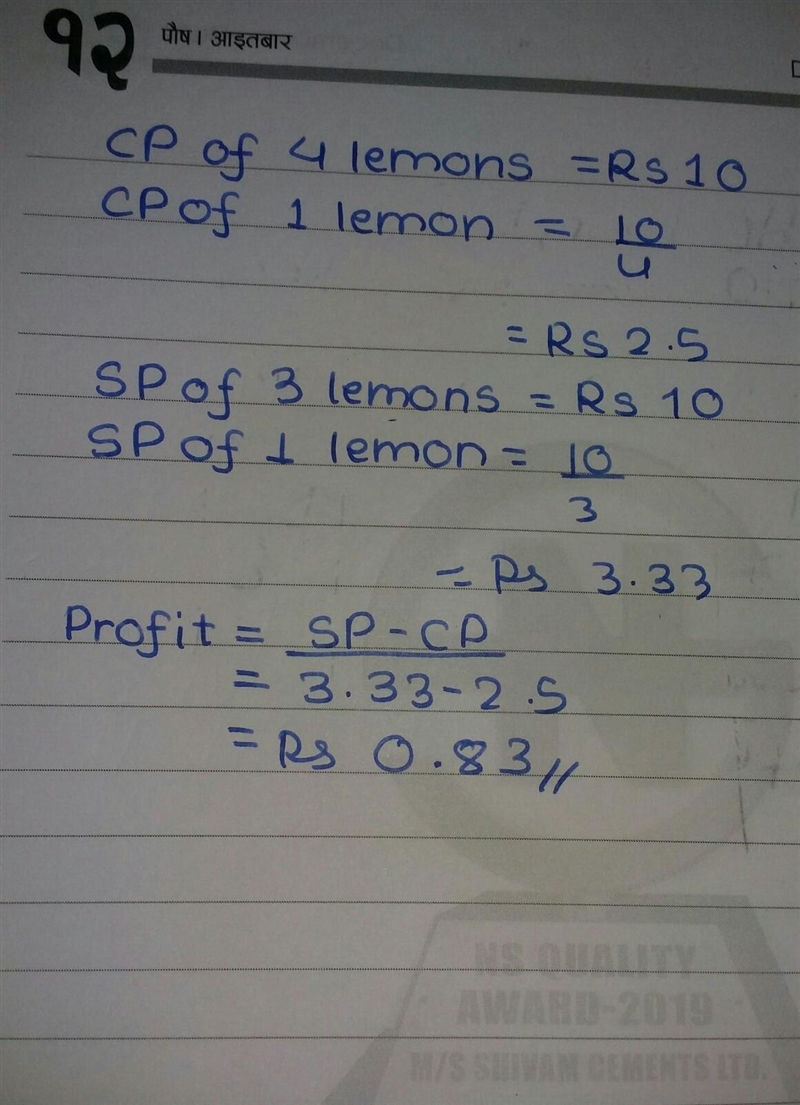 १२ पौष। आइतबार
CP of 4 lemons = Rs 10
CP of 1 lemon = 10
4
= Rs 2.5
SP of 3 lemons = Rs 10
SP of 1 lemon = 10
3
= Rs 3.33
Profit = SP - CP
= 3.33 - 2.5
= Rs 0.83 //
NS QUALITY
AWARD-2019
M/S SHIVAM CEMENTS LTD.